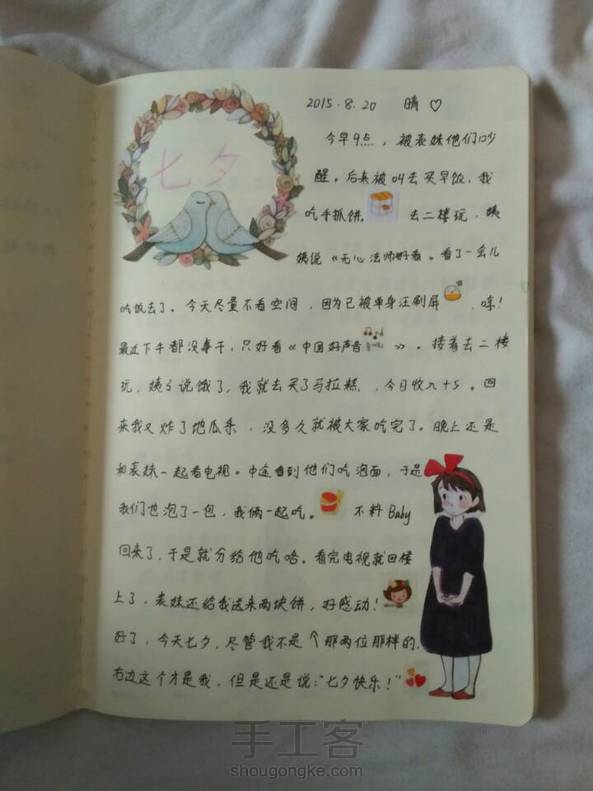 2015.8.20 晴♡
七夕
今早9点，被表妹他们吵
醒。后来被叫去买早饭，我
吃手抓饼。去二楼玩，姨
姨说《无心法师好看。看了一会儿
吃饭去了。今天尽量不看空间，因为已被单身汪刷屏，哇！
最近下午都没事干，只好看《中国好声音》。接着去二楼
玩，姨姨说饿了，我就去买了马拉糕，今日收入+5。回
来我又炸了地瓜条，没多久就被大家吃完了。晚上还是
和表妹一起看电视。中途看到他们吃泡面，于是
我们也泡了一包，我俩一起吃。不料Baby
回来了，于是就分给他吃咯。看完电视就回楼
上了，表妹还给我送来两块饼，好感动！
好了，今天七夕，尽管我不是↖那两位那样的，
右边这个才是我，但是还是说："七夕快乐！"
手工客
shougongke.com